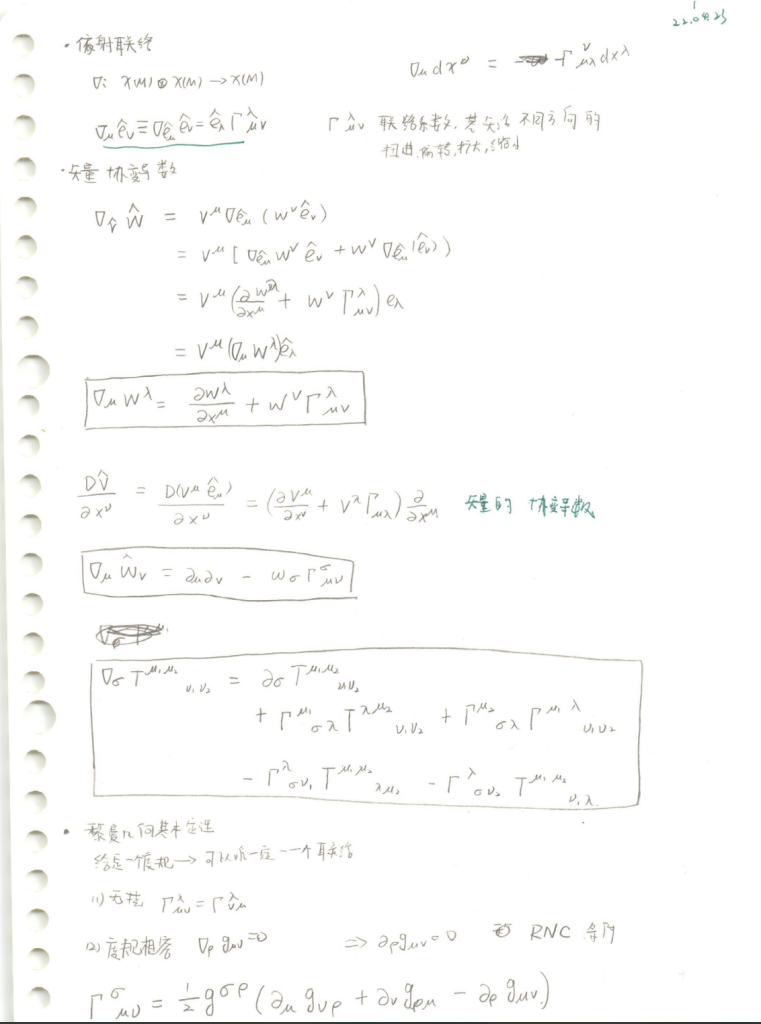 22.04.25
· 仿射联络
∇: X(M) ⊗ X(M) → X(M)
∇_μ dx^ν = -Γ^ν_{μλ} dx^λ
∇_μ ê_ν ≡ ∇_{ê_μ} ê_ν = ê_λ Γ^λ_{μν}
Γ^λ_{μν} 联络系数, 基矢沿不同方向的
扭进, 偏转, 扩大, 缩小
· 矢量 协变导数
∇_{V̂} Ŵ = V^μ ∇_{ê_μ} (W^ν ê_ν)
= V^μ [ ∇_{ê_μ} W^ν ê_ν + W^ν ∇_{ê_μ}(ê_ν) ]
= V^μ (∂W^λ/∂x^μ + W^ν Γ^λ_{μν}) e_λ
= V^μ (∇_μ W^λ) ê_λ
∇_μ W^λ = ∂W^λ/∂x^μ + W^ν Γ^λ_{μν}
DV̂/∂x^ν = D(V^μ ê_μ)/∂x^ν = (∂V^μ/∂x^ν + V^λ Γ^μ_{μλ}) ∂/∂x^μ 矢量的 协变导数
∇_μ Ŵ_ν = ∂_μ ∂_ν - W_σ Γ^σ_{μν}
∇_σ T^{μ₁μ₂}_{ν₁ν₂} = ∂_σ T^{μ₁μ₂}_{ν₁ν₂}
+ Γ^{μ₁}_{σλ} T^{λμ₂}_{ν₁ν₂} + Γ^{μ₂}_{σλ} Γ^{μ₁λ}_{ν₁ν₂}
- Γ^λ_{σν₁} T^{μ₁μ₂}_{λμ₂} - Γ^λ_{σν₂} T^{μ₁μ₂}_{ν₁λ}
· 黎曼几何基本定理
给定一个度规 → 可以唯一定一个联络
(1) 无挠 Γ^λ_{μν} = Γ^λ_{νμ}
(2) 度规相容 ∇_ρ g_{μν} = 0 ⇒ ∂_ρ g_{μν} = 0 RNC
Γ^σ_{μν} = 1/2 g^{σρ} (∂_μ g_{νρ} + ∂_ν g_{ρμ} - ∂_ρ g_{μν})